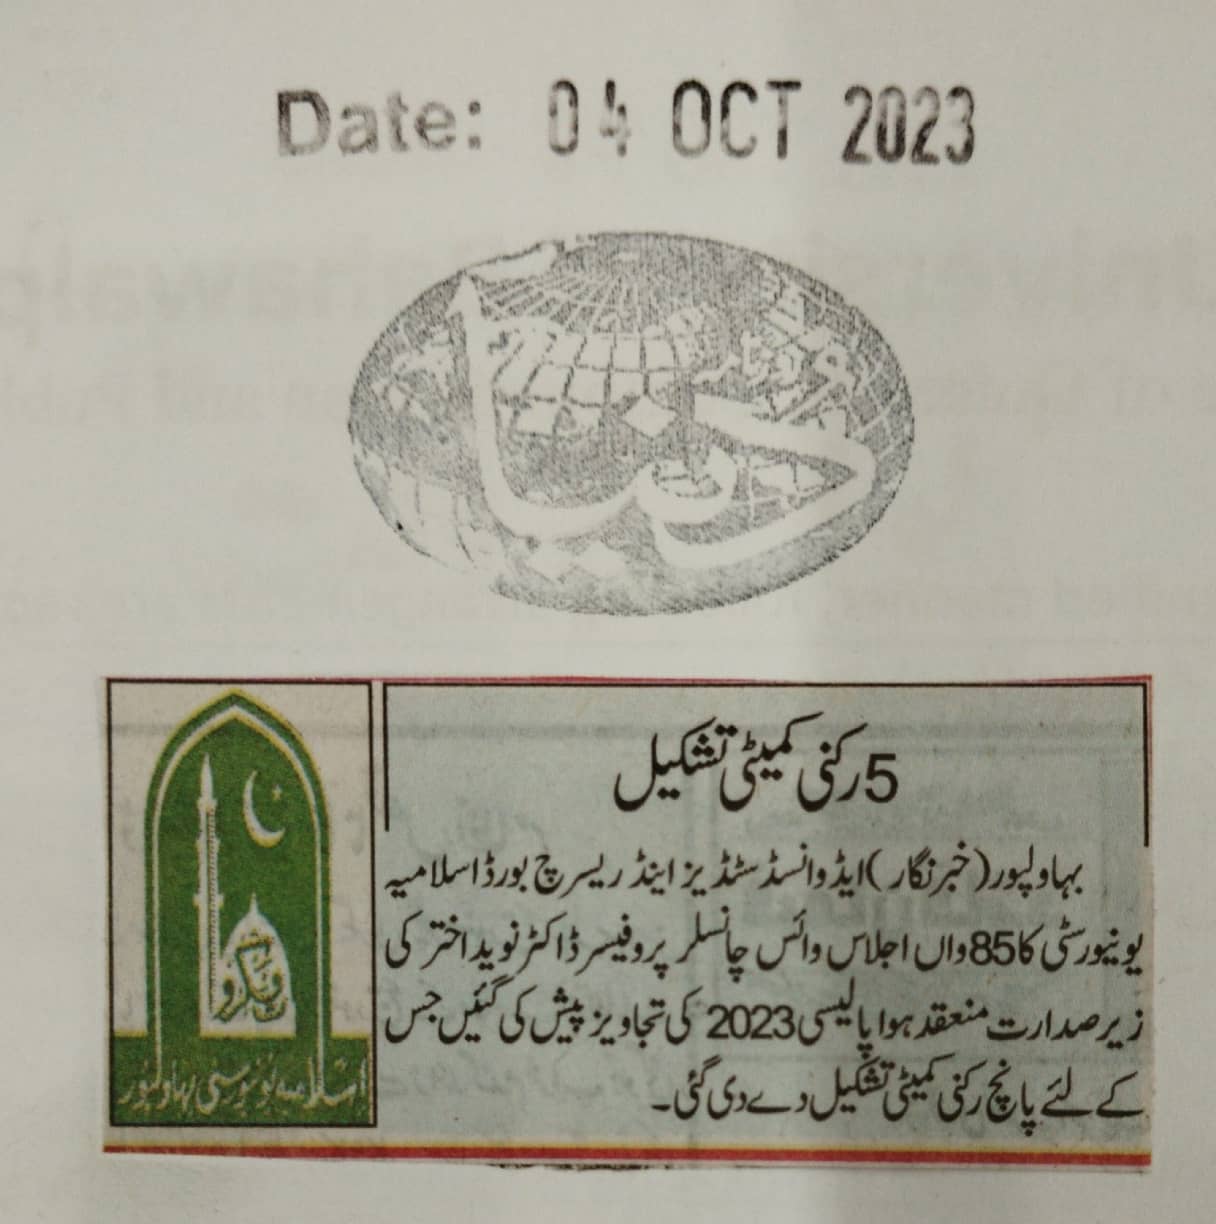 Date: 04 OCT 2023
روزنامہ
دنیا
5 رکنی کمیٹی تشکیل
بہاولپور (خبرنگار) ایڈوانسڈ سٹڈیز اینڈ ریسرچ بورڈ اسلامیہ
یونیورسٹی کا 85واں اجلاس وائس چانسلر پروفیسر ڈاکٹر نوید اختر کی
زیر صدارت منعقد ہوا پالیسی 2023 کی تجاویز پیش کی گئیں جس
کے لئے پانچ رکنی کمیٹی تشکیل دے دی گئی۔
اسلامیہ یونیورسٹی بہاولپور